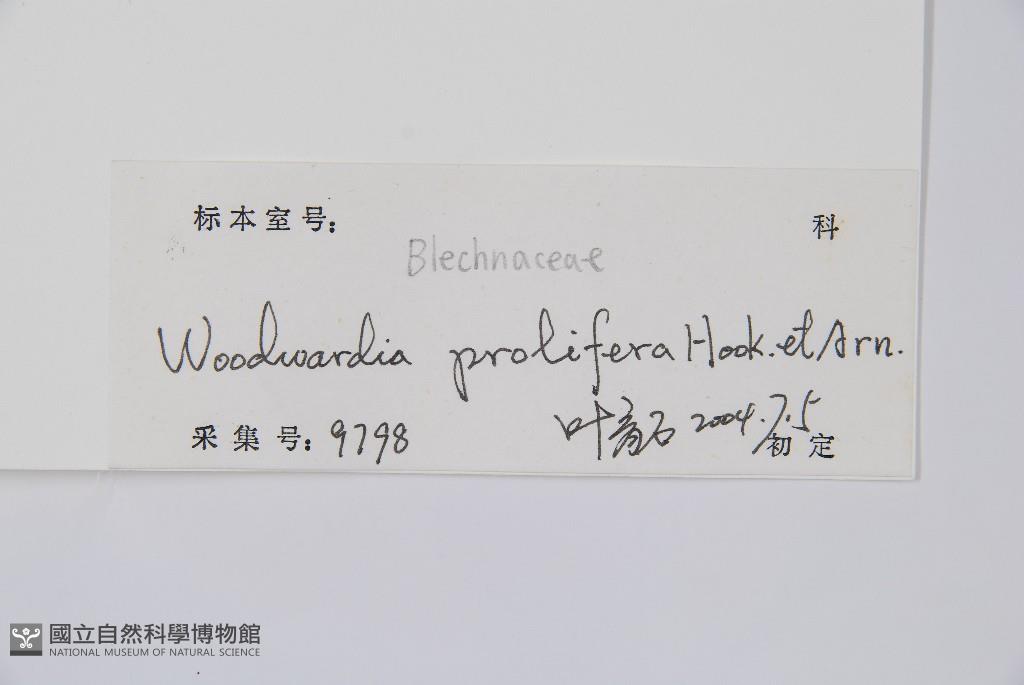 标本室号： 科
Blechnaceae
Woodwardia prolifera Hook. et Arn.
采集号：9798 叶育石 2004.7.5
初定
國立自然科學博物館
NATIONAL MUSEUM OF NATURAL SCIENCE